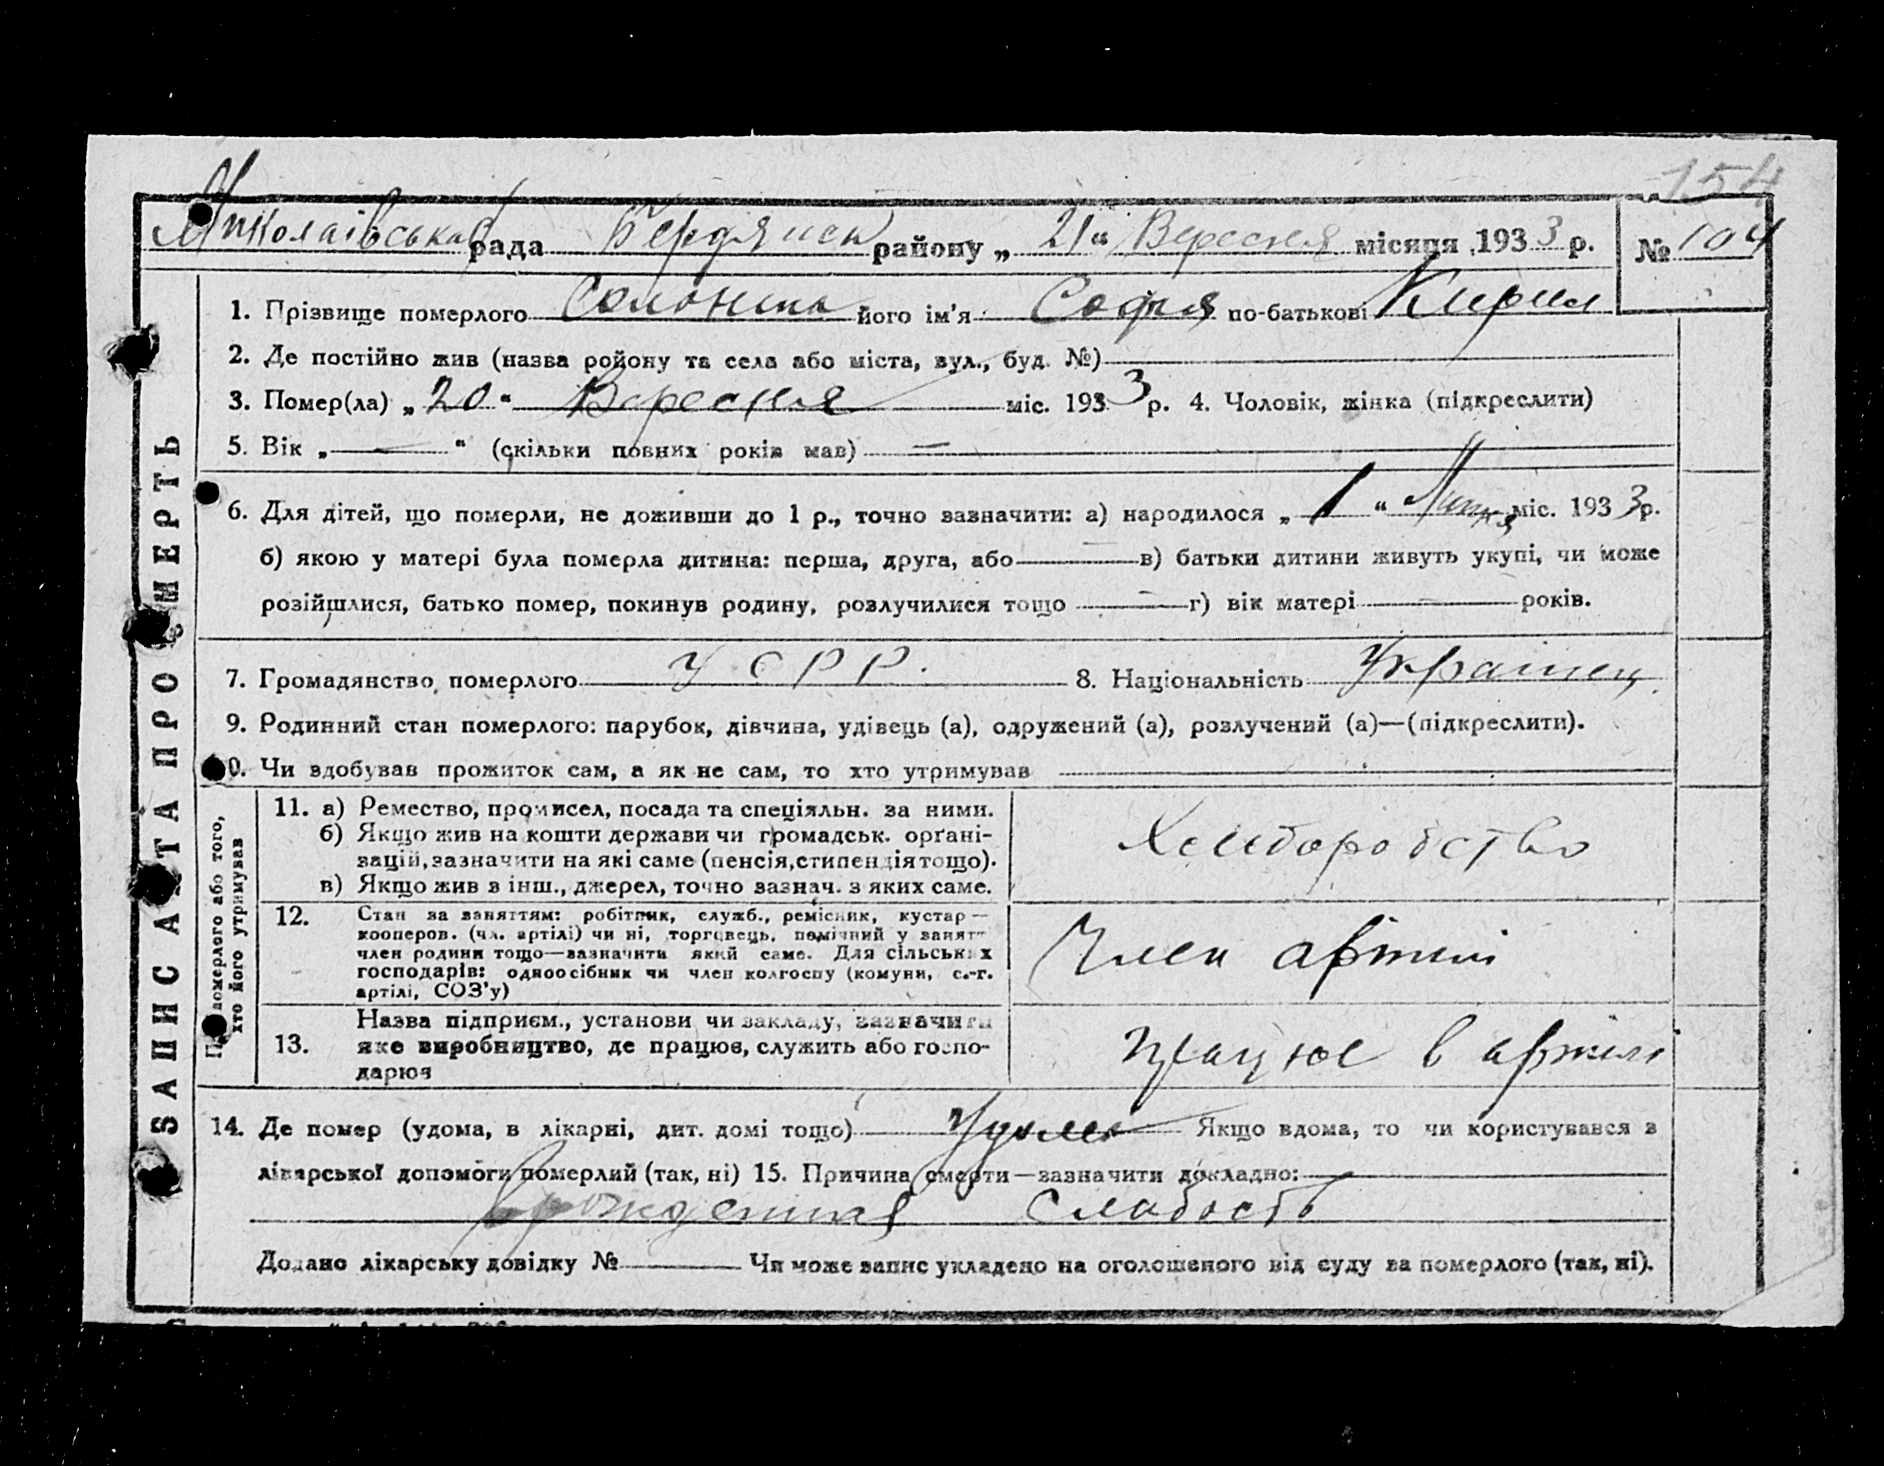 154
Миколаївська рада Бердянськ району „ 21 “ Вересня місяця 1933 р. № 104
1. Прізвище померлого його ім'я Софія по-батькові Кирил
2. Де постійно жив (назва ройону та села або міста, вул., буд. №)
3. Помер(ла) „ 20 “ Вересня міс. 1933 р. 4. Чоловік, жінка (підкреслити)
5. Вік „ — “ (скільки повних років мав) —
6. Для дітей, що померли, не доживши до 1 р., точно зазначити: а) народилося „ 1 “ Липня міс. 1933 р.
б) якою у матері була померла дитина: перша, друга, або — в) батьки дитини живуть укупі, чи може
розійшлися, батько помер, покинув родину, розлучилися тощо — г) вік матері — років.
7. Громадянство померлого У С Р Р. 8. Національність Українец
9. Родинний стан померлого: парубок, дівчина, удівець (а), одружений (а), розлучений (а)—(підкреслити).
10. Чи здобував прожиток сам, а як не сам, то хто утримував
ЗАПИС АКТА ПРО СМЕРТЬ
Про померлого або того,
хто його утримував
11. а) Ремество, промисел, посада та спеціяльн. за ними.
б) Якщо жив на кошти держави чи громадськ. орґані-
зацій, зазначити на які саме (пенсія, стипендія тощо).
в) Якщо жив з інш., джерел, точно зазнач. з яких саме.
Хлеборобство
12. Стан за заняттям: робітник, служб., ремісник, кустар —
кооперов. (чл. артілі) чи ні, торговець, помічний у занятт
член родини тощо—зазначити який саме. Для сільських
господарів: одноосібник чи член колгоспу (комуни, с.-г.
артілі, СОЗ'у)
Член артілі
13. Назва підприєм., установи чи закладу, зазначити
яке виробництво, де працює, служить або госпо-
дарює
Працює в артілі
14. Де помер (удома, в лікарні, дит. домі тощо) Удома Якщо вдома, то чи користувався з
лікарської допомоги померлий (так, ні) 15. Причина смерти—зазначити докладно:
врожденная слабость
Додано лікарську довідку № — Чи може запис укладено на оголошеного від суду за померлого (так, ні).